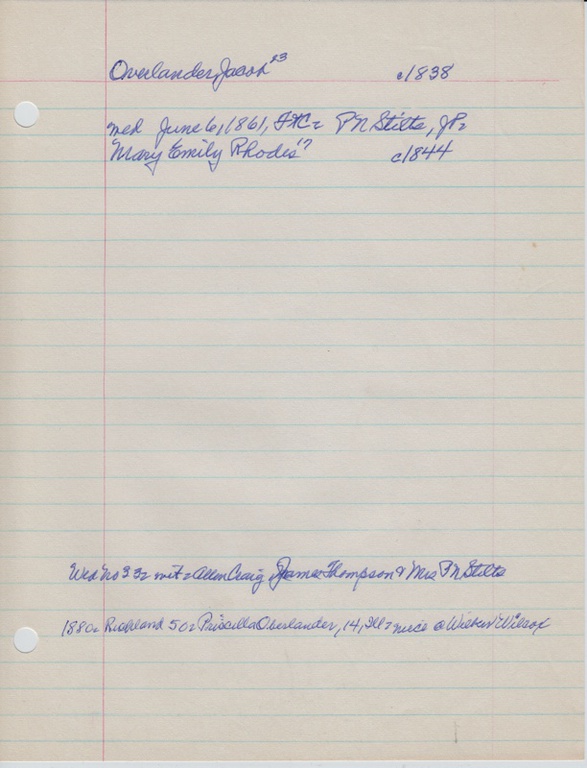 Overlander, Jacob 23 c1838
wed June 6, 1861, PN Stilts, JP
Mary Emily Rhodes 17 c1844
Wed No 33 wit Allen Craig James Thompson & Mrs PN Stilts
1880 Richland 50 Priscilla Oberlander, 14, Ill niece @ Wilson